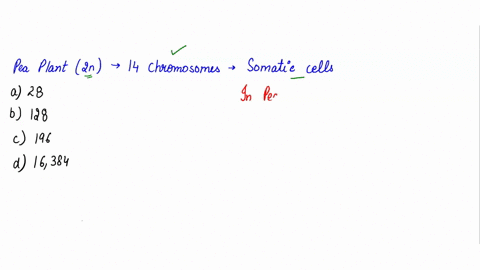 Pea Plant (2n) → 14 Chromosomes → Somatic cells
a) 28
In Per
b) 128
c) 196
d) 16,384